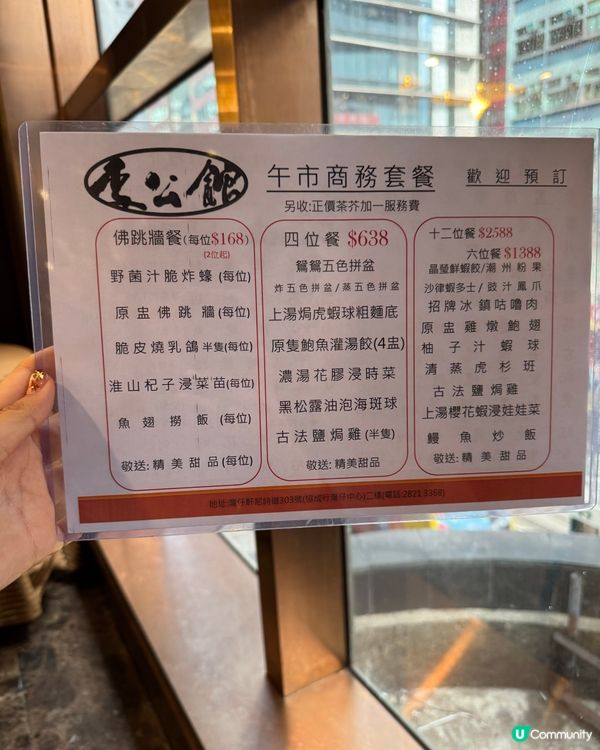 李公館
午市商務套餐
歡迎預訂
另收:正價茶芥加一服務費
佛跳牆餐(每位$168)
(2位起)
野菌汁脆炸蠔(每位)
原盅佛跳牆(每位)
脆皮燒乳鴿半隻(每位)
淮山杞子浸菜苗(每位)
魚翅撈飯(每位)
敬送:精美甜品(每位)
四位餐 $638
鴛鴦五色拼盆
炸五色拼盆/蒸五色拼盆
上湯焗虎蝦球粗麵底
原隻鮑魚灌湯餃(4盅)
濃湯花膠浸時菜
黑松露油泡海斑球
古法鹽焗雞(半隻)
敬送:精美甜品
十二位餐 $2588
六位餐 $1388
晶瑩鮮蝦餃/潮州粉果
沙律蝦多士/豉汁鳳爪
招牌冰鎮咕嚕肉
原盅雞燉鮑翅
柚子汁蝦球
清蒸虎杉班
古法鹽焗雞
上湯櫻花蝦浸娃娃菜
鰻魚炒飯
敬送:精美甜品
地址:灣仔軒尼詩道303號(協成行灣仔中心)二樓(電話:2821 3368)
U Community